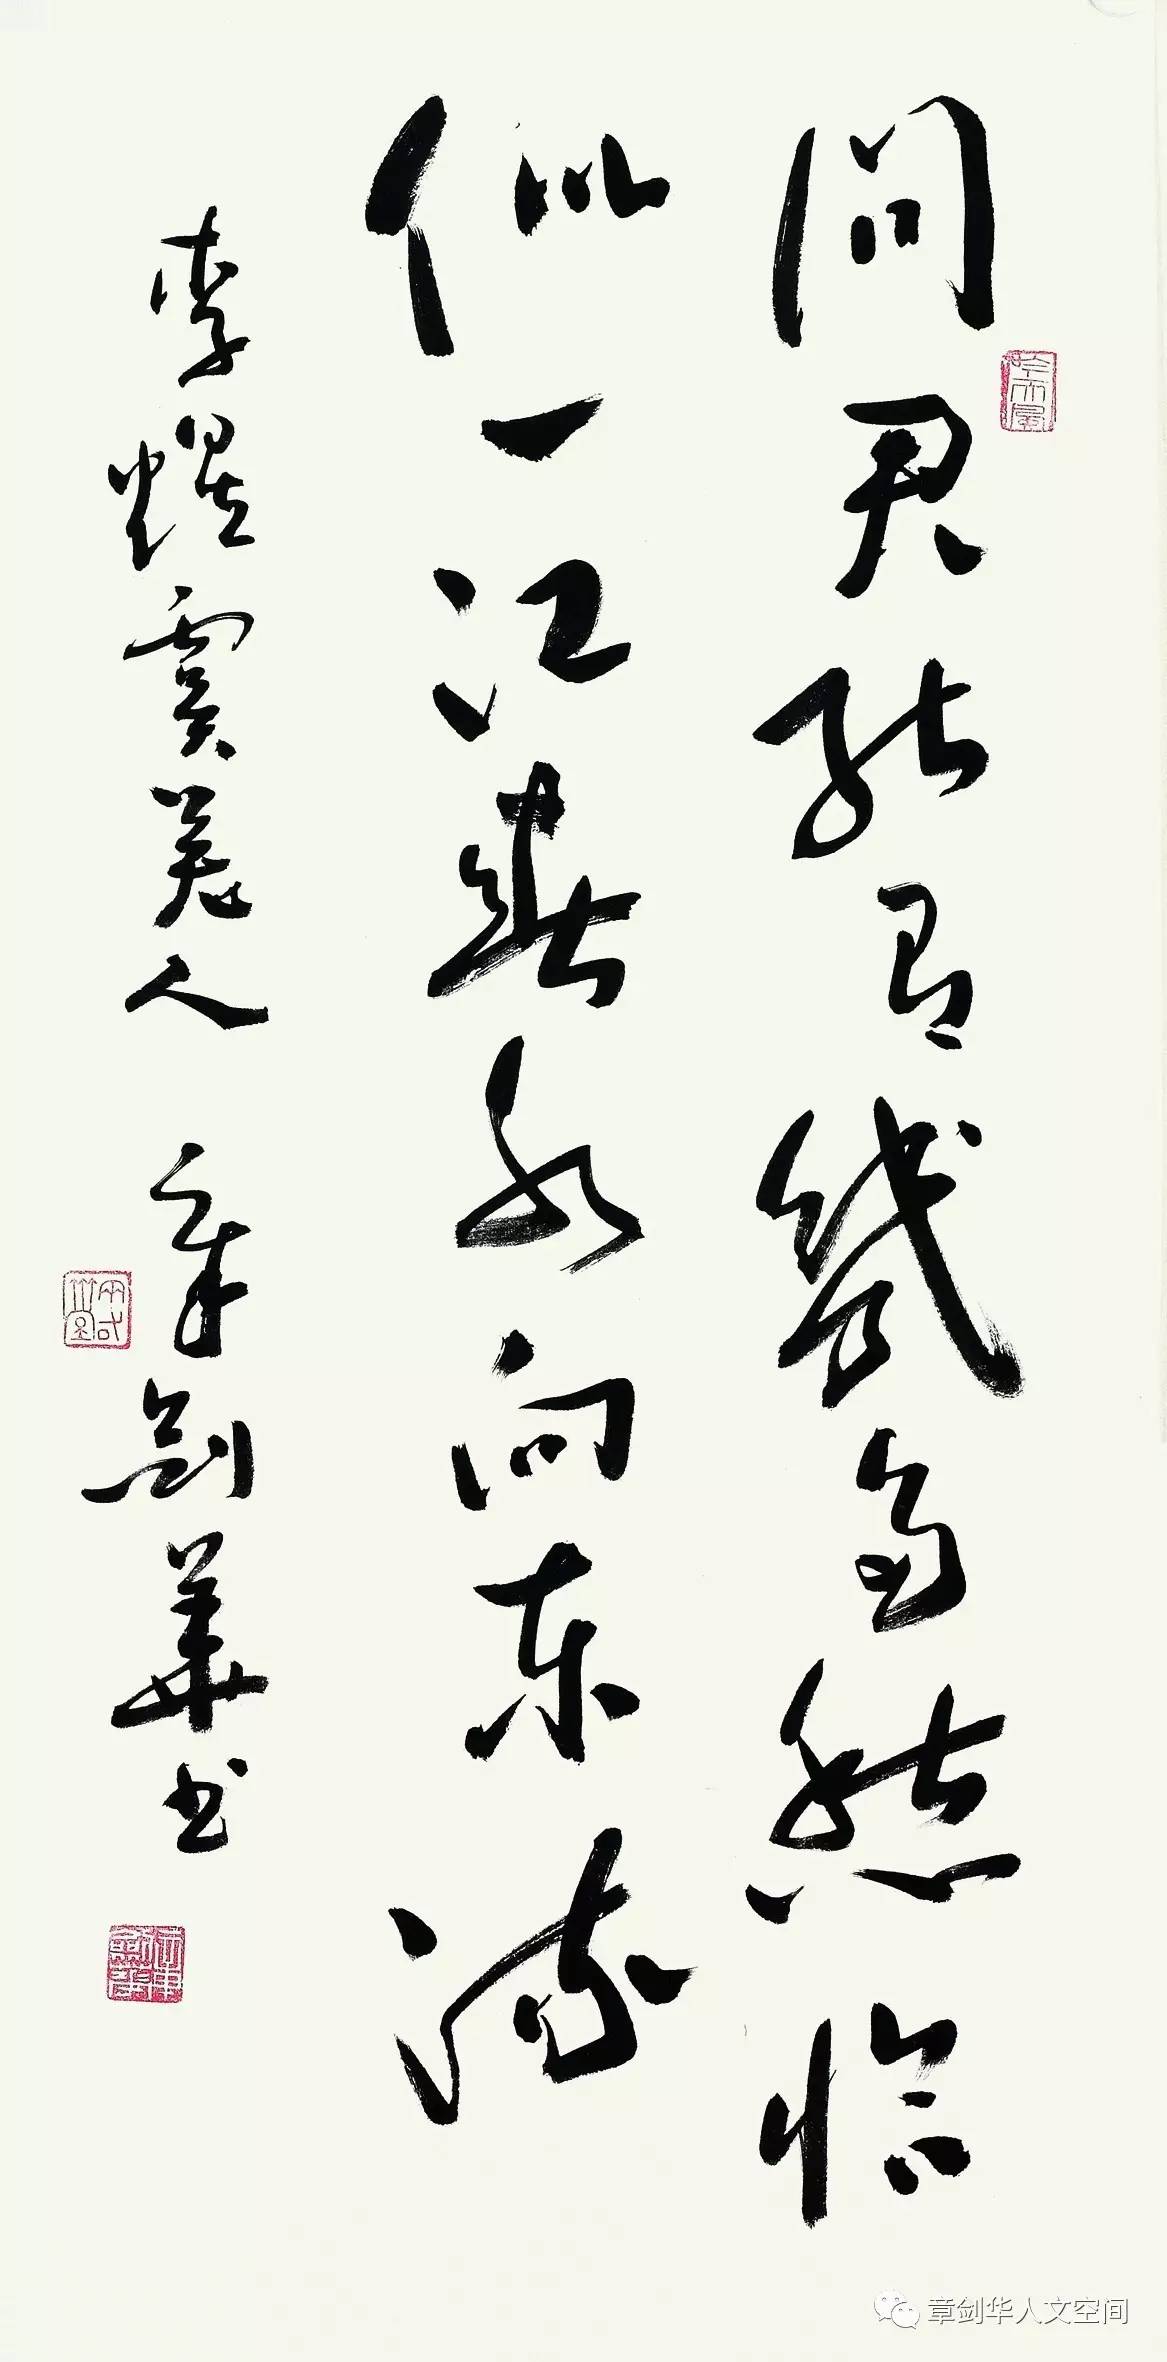 问君能有幾多愁恰
似一江春水向东流
李煜虞美人 章剑華书
章剑华人文空间